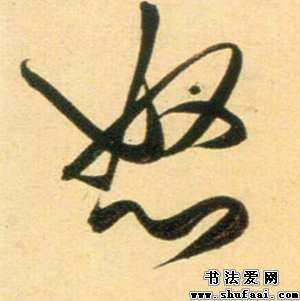 怒
书法爱网
www.shufaai.com